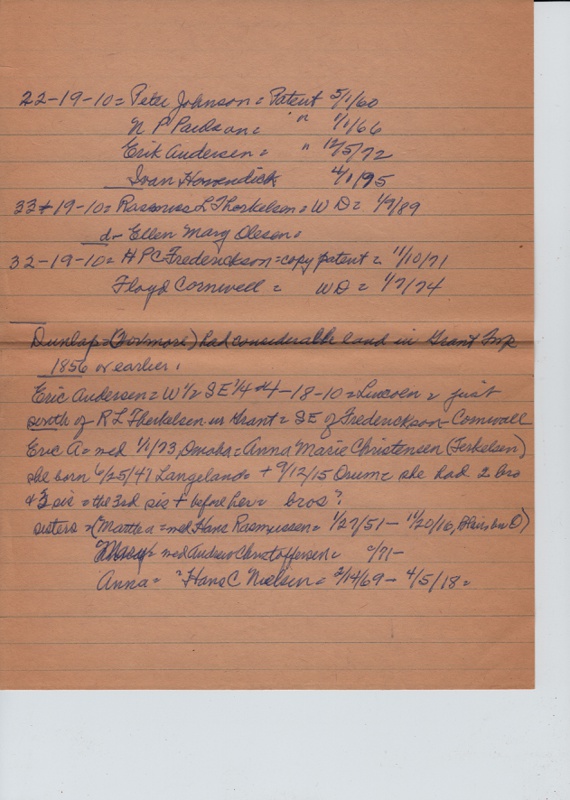 22-19-10 = Peter Johnson = Patent 5/1/60
N P Paulson = " 1/1/66
Erik Andersen = " 12/5/72
Ivan 4/1/95
33-19-10 = Rasmus L Therkelson = W D = 1/7/89
do Ellen Mary Olesen =
32-19-10 = H P C Frederickson = copy patent = 11/10/71
Floyd Cornwell = WD = 1/7/74
Dunlap = had considerable land in Grant Twp
1856 or earlier.
Eric Andersen = W 1/2 SE 1/4 4-18-10 = Lincoln = just
south of R L Therkelsen in Grant = SE of Frederickson-Cornwell
Eric A = med 1/1/73, Omaha = Anna Marie Christensen (Terkelsen)
she born 6/25/47 Langeland = + 9/12/15 Orum = she had 2 bro
& 3 sis = the 3rd sis + before her = bros?
sisters = (Martha = med Hans Rasmussen = 1/27/51 - 11/20/16,
Mary = med Andrew Christoffersen = /71-
Anna = " Hans C Nielsen = 2/14/69 - 4/5/18 =